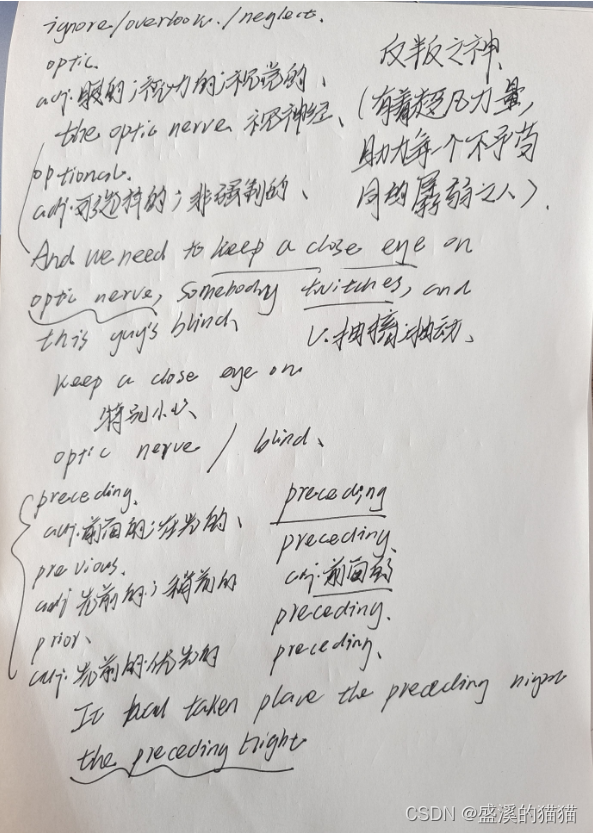 ignore/overlook/neglect.
optic.
adj.眼的;视力的;视觉的、
the optic nerve 视神经、
optional.
adj.可选择的;非强制的、
反叛之神、
(有着超凡力量,
助力每一个不予苟
同的孱弱之人).
And we need to keep a close eye on
optic nerve, somebody twitches, and
this guy's blind、
v.抽搐;抽动、
keep a close eye on
特别小心、
optic nerve / blind、
preceding、
adj.前面的;在先的、
previous.
adj 先前的;稍前的
prior、
adj.先前的;优先的
preceding
preceding、
adj.前面的
preceding.
preceding、
It had taken place the preceding night
the preceding night
CSDN @盛溪的猫猫